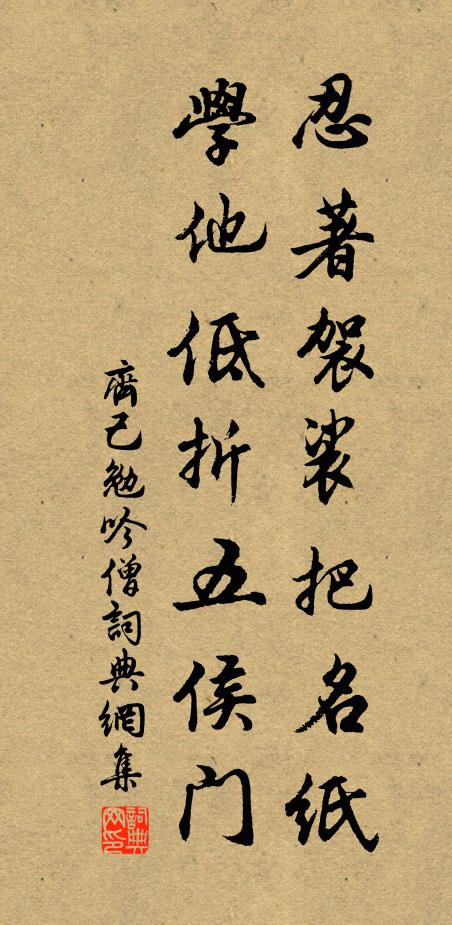 忍著袈裟把名紙
學他低折五侯門
齊己勉吟僧詞典網集
詞典网印